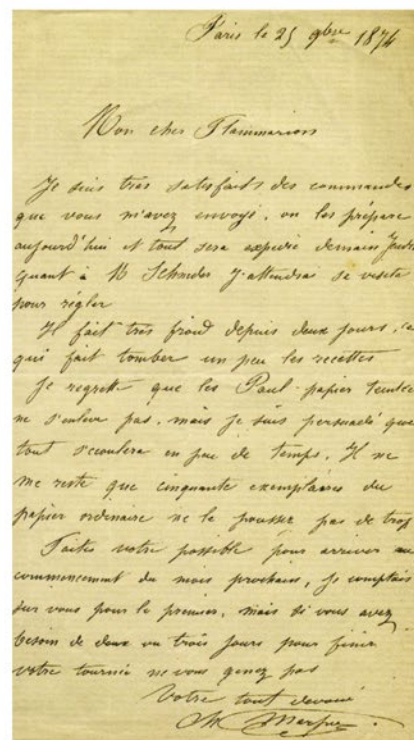 Paris le 25 9bre 1874
Mon cher Flammarion
Je suis très satisfaits des commandes
que vous m'avez envoyé. on les prépare
aujourd'hui et tout sera expédié demain Jeudi
quant à M Schneider J'attendrai sa visite
pour régler
Il fait très froid depuis deux jours, ce
qui fait tomber un peu les recettes
Je regrette que les Paul papier teinté
ne s'enleve pas, mais je suis persuadé que
tout s'écoulera en peu de temps. Il ne
me reste que cinquante exemplaires du
papier ordinaire ne le poussez pas de trop
Faites votre possible pour arriver au
commencement du mois prochain, je comptais
sur vous pour le premier, mais si vous avez
besoin de deux ou trois jours pour finir
votre tournée ne vous genez pas
Votre tout dévoué